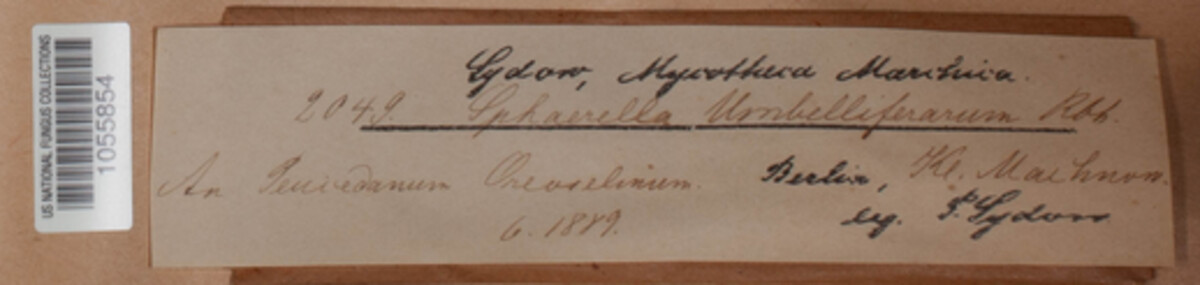 US NATIONAL FUNGUS COLLECTIONS
1055854
Sydow, Mycotheca Marchica.
2049. Sphaerella Umbelliferarum Rbh.
An Peucedanum Oreoselinum. Berlin, Kl. Machnow.
6. 1889. leg. P. Sydow